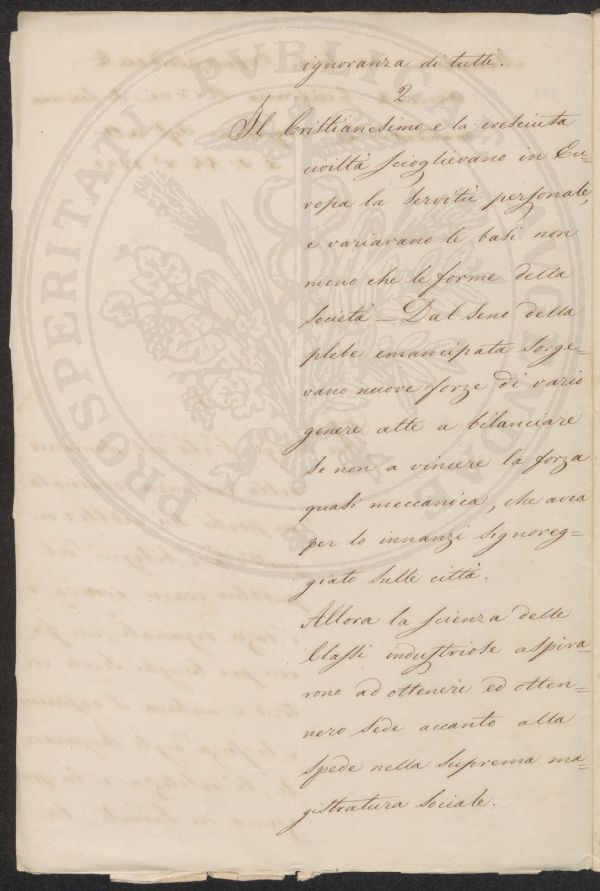 ignoranza di tutti.
2
Il Cristianesimo e la cresciuta
civiltà scioglievano in Eu-
ropa la servitù personale,
e variavano le basi non
meno che le forme della
società – Dal seno della
plebe emancipata sorge-
vano nuove forze di vario
genere atte a bilanciare
se non a vincere la forza
quasi meccanica, che avea
per lo innanzi signoreg-
giato sulle città.
Allora la scienza delle
Classi industriose aspira-
rono ad ottenere ed otten-
nero sede accanto alla
spede nella suprema ma-
gistratura sociale.
PROSPERITATI PVBLICAE